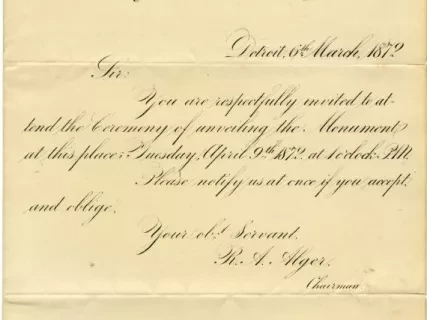 Detroit, 6th March, 1872
Sir:
You are respectfully invited to at-
tend the Ceremony of unveiling the Monument
at this place: Tuesday, April 9th 1872. at 1 o'clock P.M.
Please notify us at once if you accept,
and oblige.
Your obt. Servant.
R. A. Alger.
Chairman